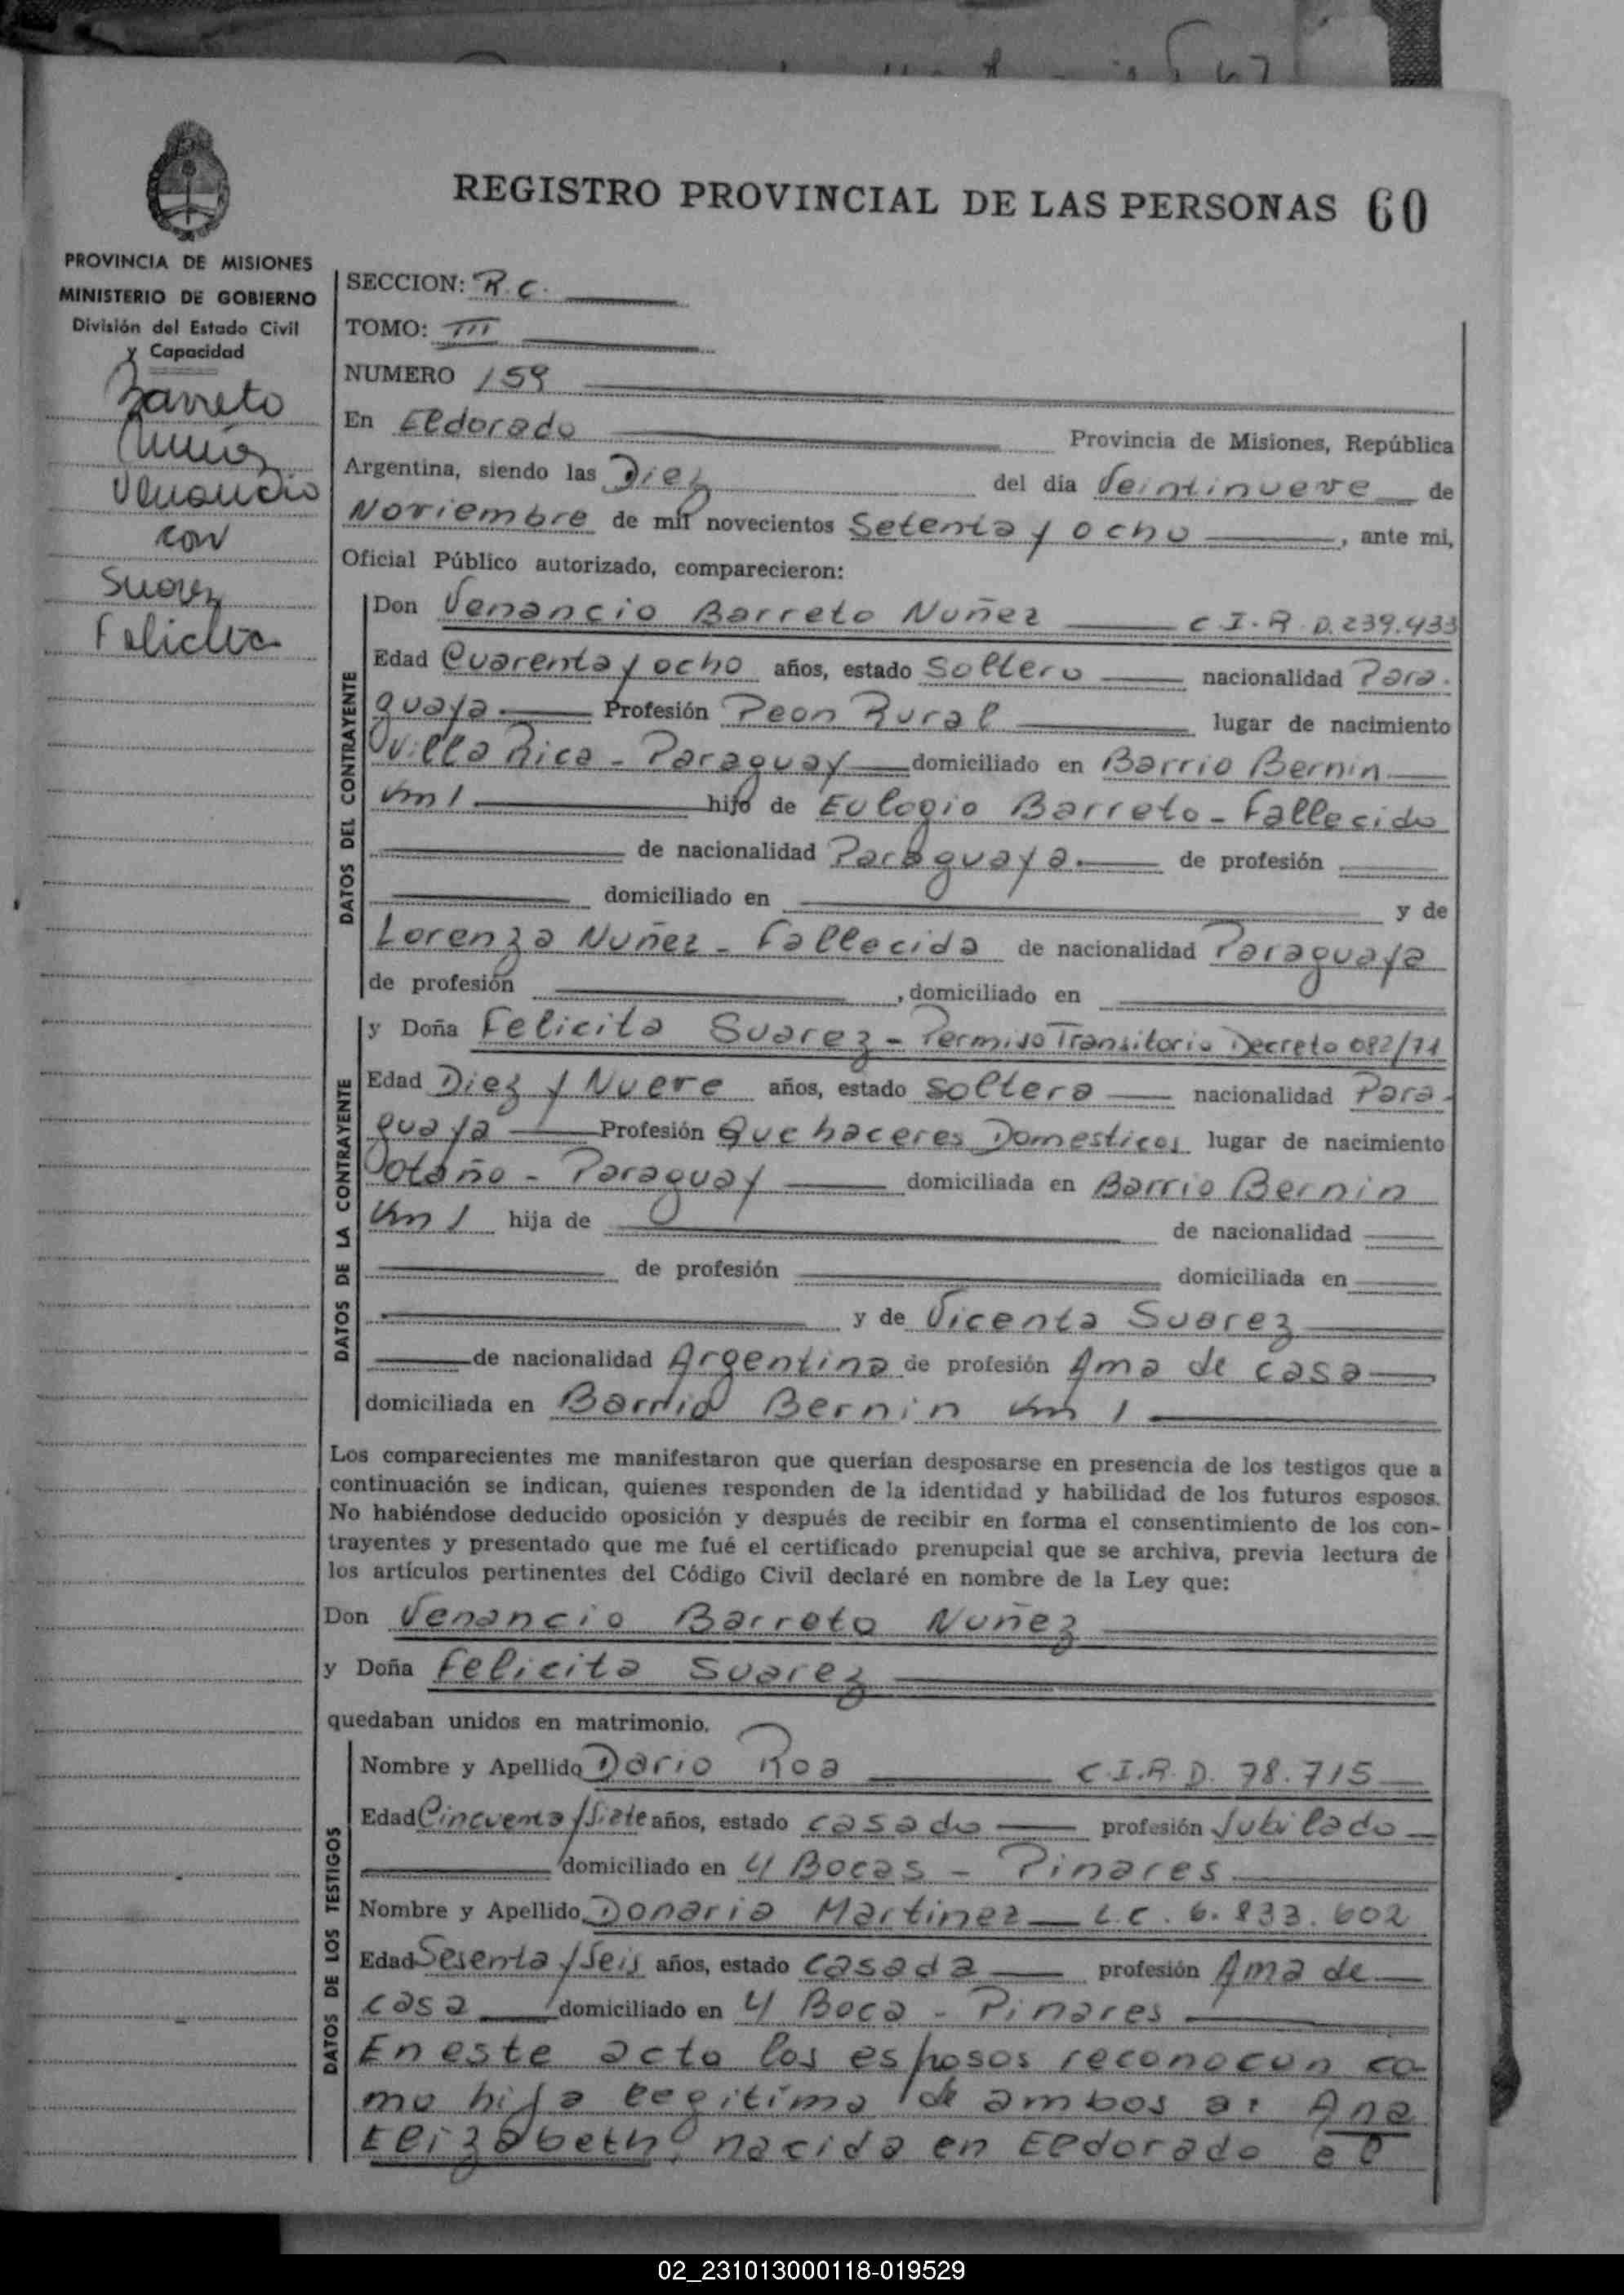 REGISTRO PROVINCIAL DE LAS PERSONAS 60
PROVINCIA DE MISIONES
MINISTERIO DE GOBIERNO
División del Estado Civil
y Capacidad
Barreto
Nuñez
Venancio
con
Suarez
Felicita
SECCION: R.C.
TOMO: III
NUMERO 159
En Eldorado Provincia de Misiones, República
Argentina, siendo las Diez del día Veintinueve de
Noviembre de mil novecientos Setenta y ocho, ante mi,
Oficial Público autorizado, comparecieron:
DATOS DEL CONTRAYENTE
Don Venancio Barreto Nuñez C.I.R.D. 239.433
Edad Cuarenta y ocho años, estado Soltero nacionalidad Para-
guaya Profesión Peon Rural lugar de nacimiento
Villa Rica - Paraguay domiciliado en Barrio Bernin
Km 1 hijo de Eulogio Barreto - Fallecido
de nacionalidad Paraguaya. de profesión
domiciliado en y de
Lorenza Nuñez - Fallecida de nacionalidad Paraguaya
de profesión , domiciliado en
DATOS DE LA CONTRAYENTE
y Doña Felicita Suarez - Permiso Transitorio Decreto 082/71
Edad Diez y Nueve años, estado soltera nacionalidad Para-
guaya Profesión Que haceres Domesticos lugar de nacimiento
Otaño - Paraguay domiciliada en Barrio Bernin
Km 1 hija de de nacionalidad
de profesión domiciliada en
y de Vicenta Suarez
de nacionalidad Argentina de profesión Ama de casa
domiciliada en Barrio Bernin Km 1
Los comparecientes me manifestaron que querían desposarse en presencia de los testigos que a
continuación se indican, quienes responden de la identidad y habilidad de los futuros esposos.
No habiéndose deducido oposición y después de recibir en forma el consentimiento de los con-
trayentes y presentado que me fué el certificado prenupcial que se archiva, previa lectura de
los artículos pertinentes del Código Civil declaré en nombre de la Ley que:
Don Venancio Barreto Nuñez
y Doña Felicita Suarez
quedaban unidos en matrimonio.
DATOS DE LOS TESTIGOS
Nombre y Apellido Dario Roa C.I.R.D. 78.715
Edad Cincuenta y Siete años, estado casado profesión Jubilado
domiciliado en 4 Bocas - Pinares
Nombre y Apellido Donaria Martinez L.C. 6.833.602
Edad Sesenta y Seis años, estado casada profesión Ama de
casa domiciliado en 4 Boca - Pinares
En este acto los esposos reconocen co-
mo hija legitima de ambos a: Ana
Elizabeth, nacida en Eldorado el
02_231013000118-019529